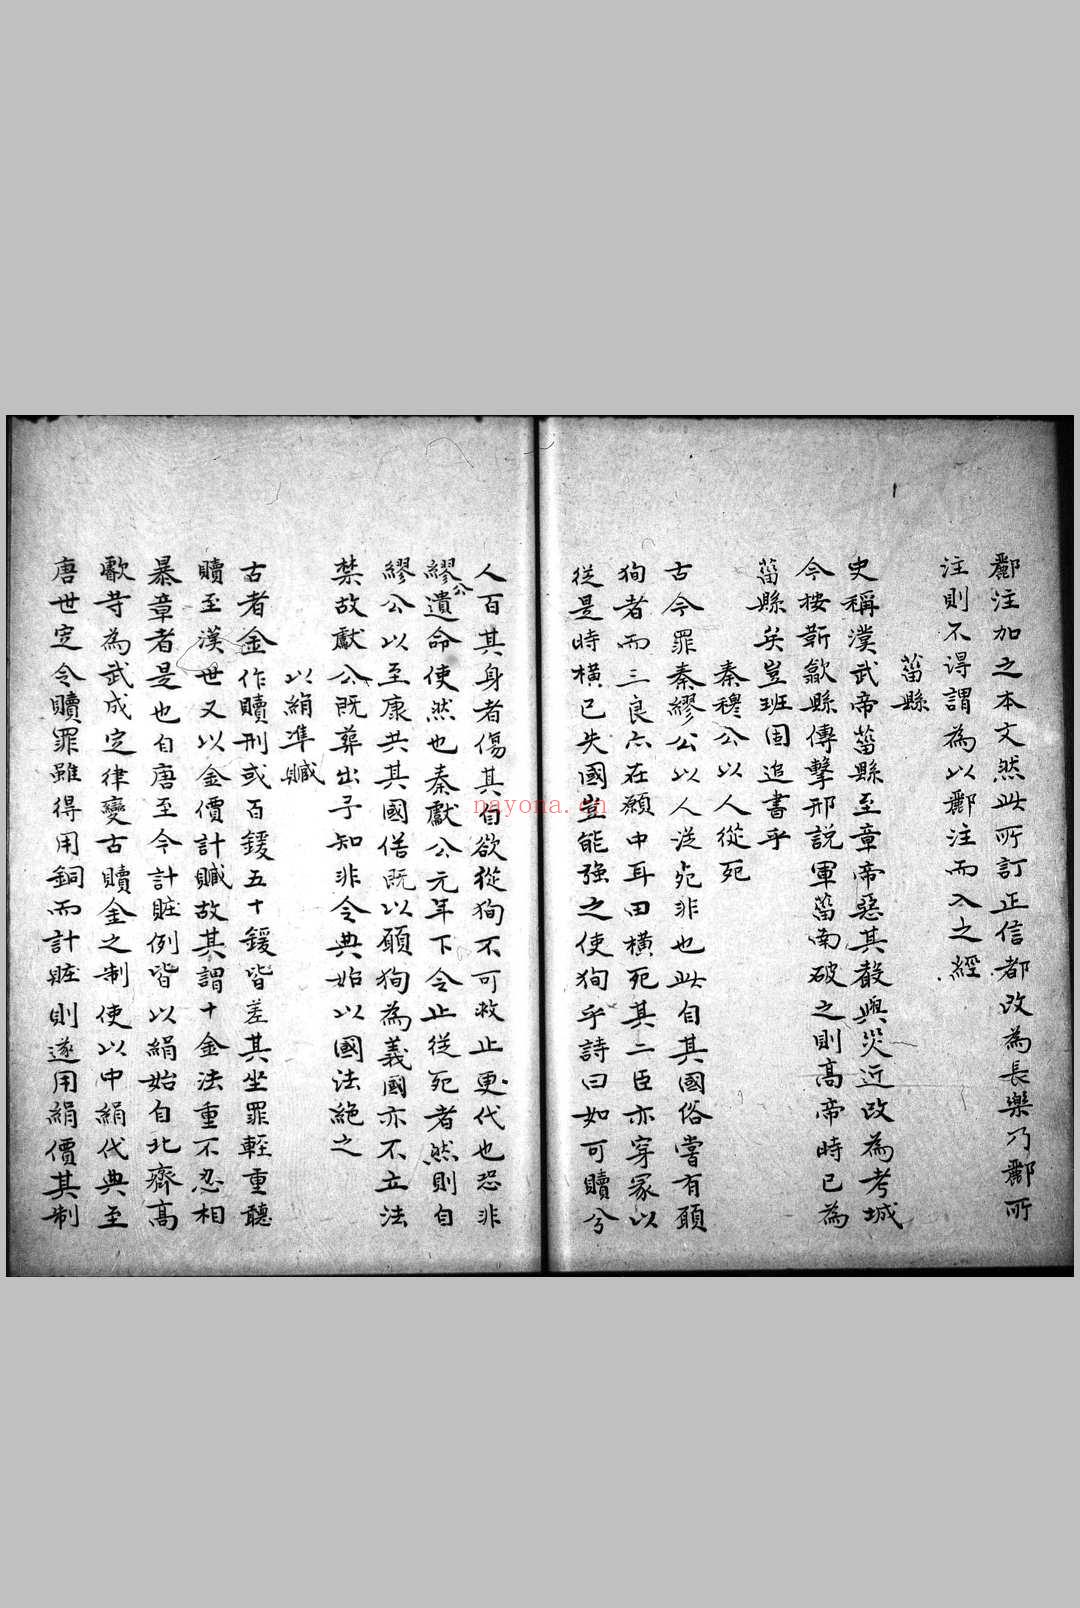 酈注加之本文然此所訂正信都改為長樂乃酈所
注則不得謂為以酈注而入之經
菑縣
史稱漢武帝菑縣至章帝惡其聲與災近改為考城
今按靳歙縣傳擊邢説軍菑南破之則高帝時已為
菑縣矣豈班固追書乎
秦穆公以人從死
古今罪秦繆公以人從死非也此自其國俗嘗有願
狥者而三良亦在願中耳田橫死其二臣亦穿冢以
從是時橫已失國豈能強之使狥乎詩曰如可贖兮
人百其身者傷其自欲從狥不可救止更代也恐非
繆公遺命使然也秦獻公元年下令止從死者然則自
繆公以至康共其國偆既以願狥為義國亦不立法
禁故獻公既葬出子知非令典始以國法絕之
以絹準贓
古者金作贖刑或百鍰五十鍰皆差其坐罪輕重聽
贖至漢世又以金價計贓故其謂十金法重不忍相
暴章者是也自唐至今計賍例皆以絹始自北齊高
歡苛為武成定律變古贖金之制使以中絹代典至
唐世定令贖罪雖得用銅而計賍則遂用絹價其制
nayona.cn